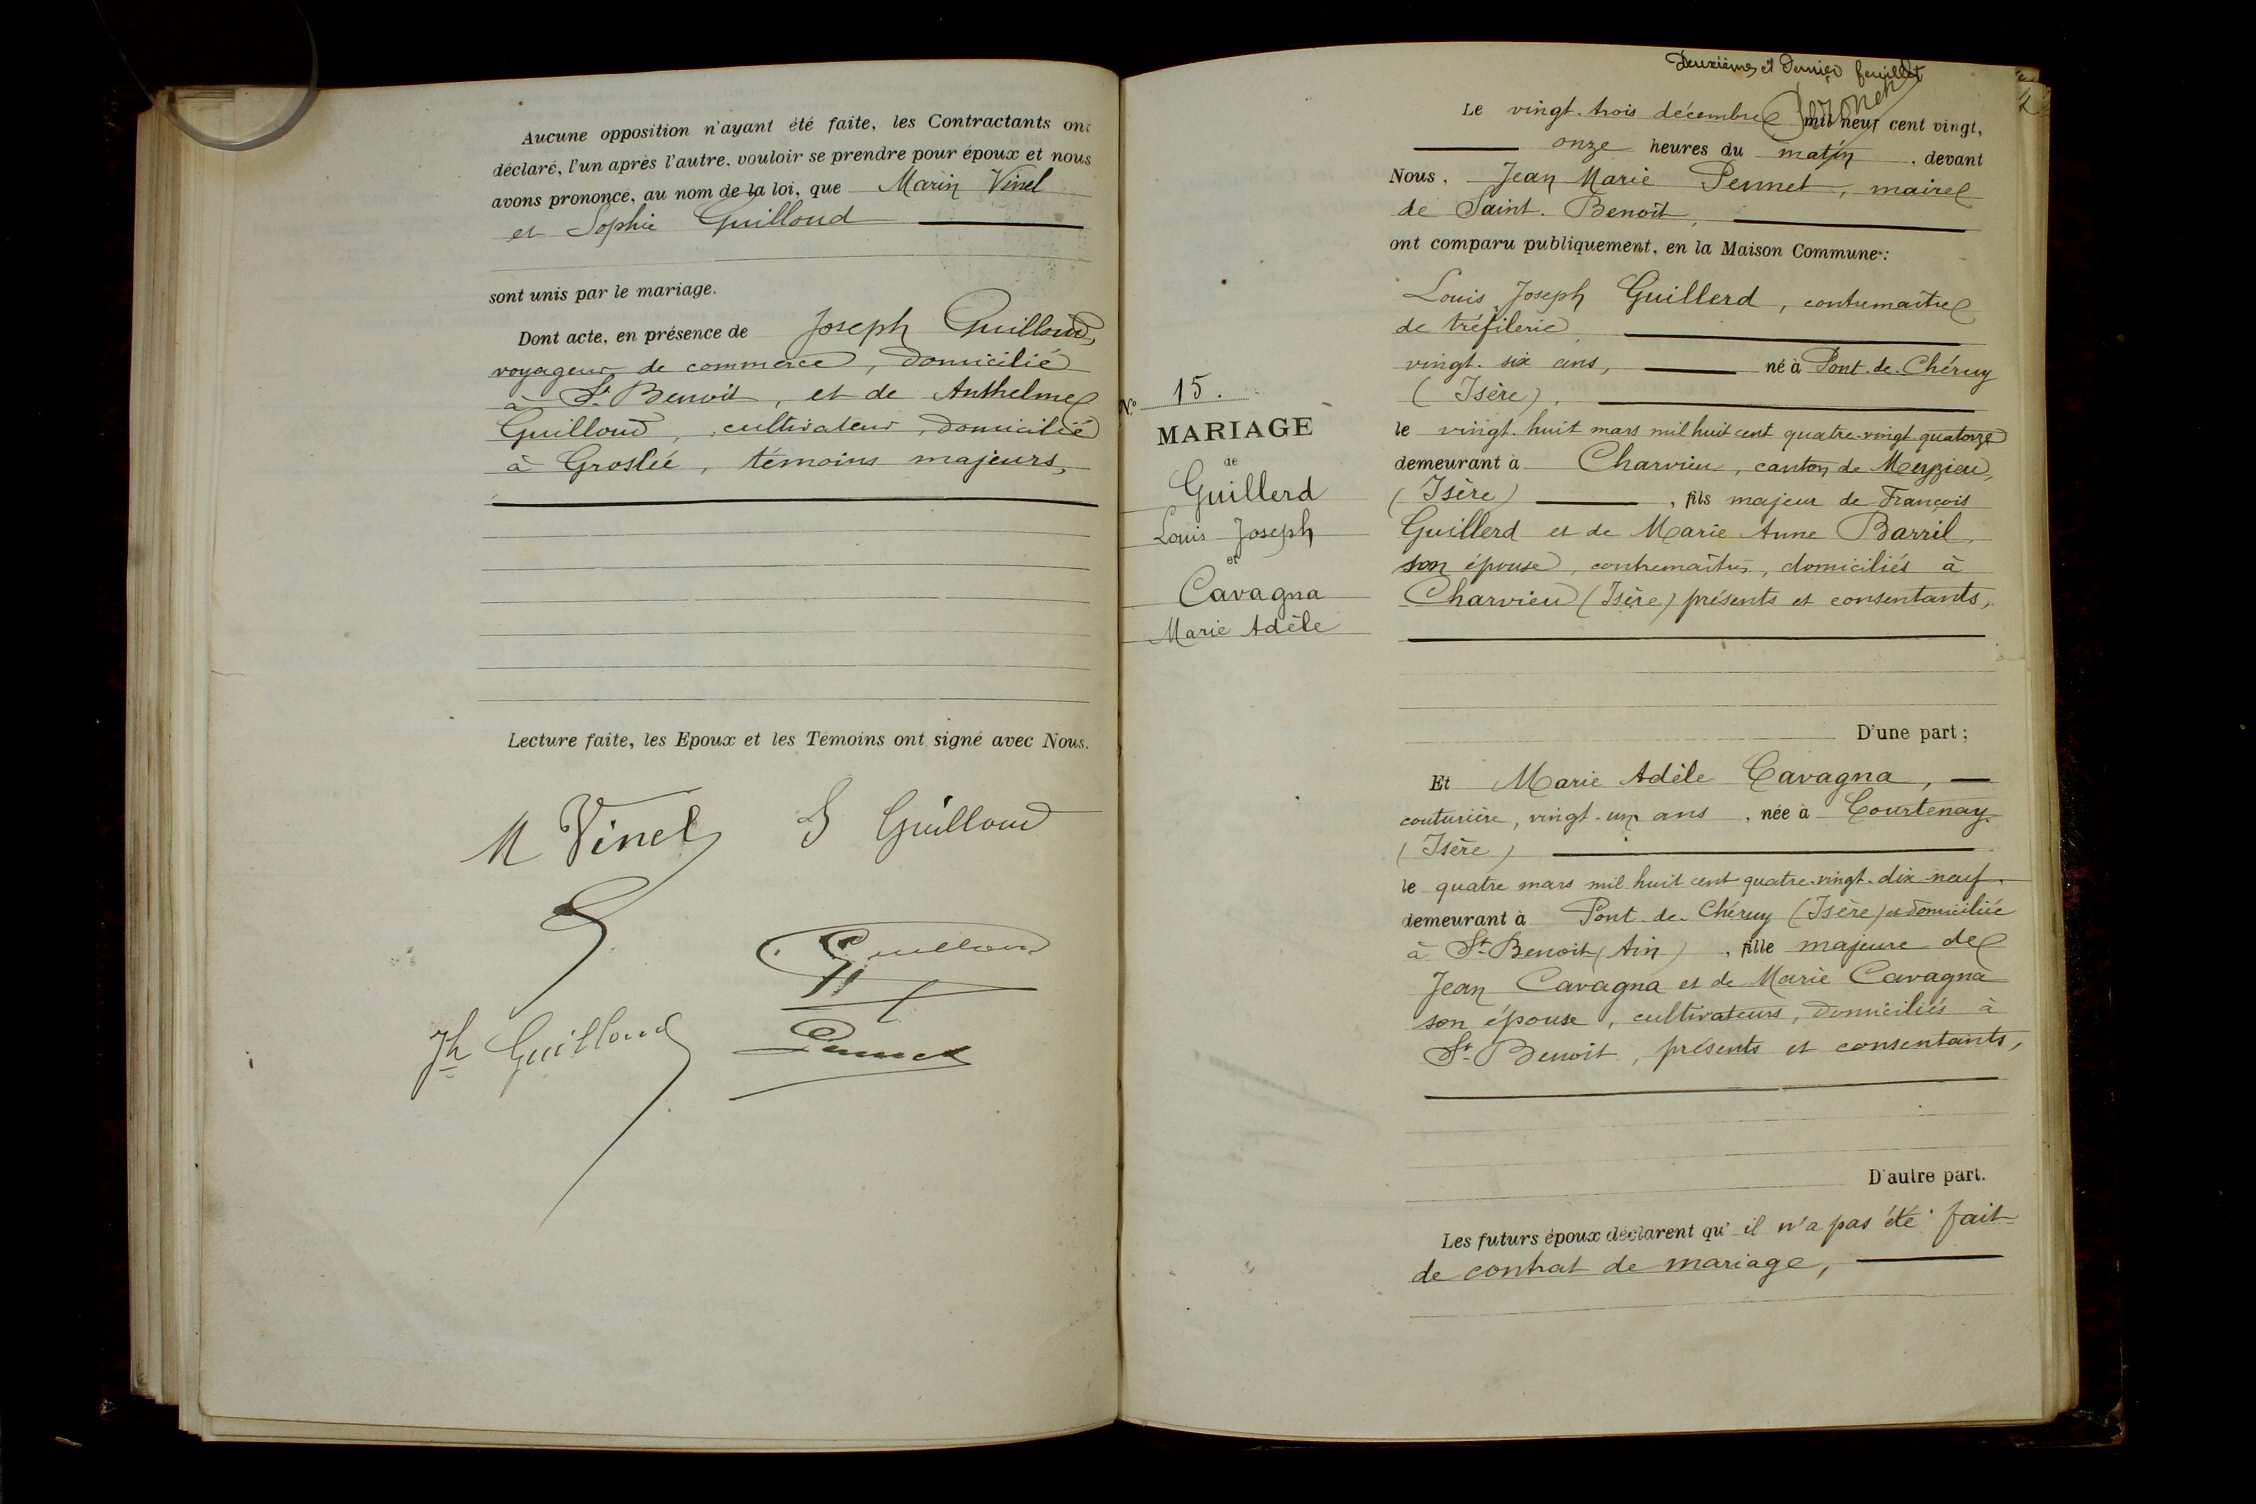 Aucune opposition n'ayant été faite, les Contractants ont
déclaré, l'un après l'autre, vouloir se prendre pour époux et nous
avons prononcé, au nom de la loi, que Marin Vinel
et Sophie Guilloud
sont unis par le mariage.
Dont acte, en présence de Joseph Guilloud,
voyageur de commerce, domicilié
à St Benoit, et de Anthelme
Guilloud, cultivateur, domicilié
à Groslée, témoins majeurs,
Lecture faite, les Epoux et les Témoins ont signé avec Nous.
M Vinel S Guilloud
Guilloud
Jh Guilloud
Pennet
Deuxième et Dernier feuillet
Le vingt-trois décembre mil neuf cent vingt,
onze heures du matin, devant
Nous, Jean Marie Pennet, maire
de Saint-Benoit,
ont comparu publiquement, en la Maison Commune:
Louis Joseph Guillerd, contremaître
de tréfilerie
vingt-six ans, né à Pont-de-Chéruy
(Isère),
le vingt-huit mars mil huit cent quatre-vingt-quatorze
demeurant à Charvieu, canton de Meyzieu,
(Isère), fils majeur de François
Guillerd et de Marie Anne Barril,
son épouse, contremaîtres, domiciliés à
Charvieu (Isère) présents et consentants,
D'une part;
Et Marie Adèle Cavagna,
couturière, vingt-un ans, née à Courtenay
(Isère)
le quatre mars mil huit cent quatre-vingt-dix-neuf.
demeurant à Pont-de-Chéruy (Isère) et domiciliée
à St-Benoit (Ain), fille majeure de
Jean Cavagna et de Marie Cavagna
son épouse, cultivateurs, domiciliés à
St-Benoit, présents et consentants,
D'autre part.
Les futurs époux déclarent qu'il n'a pas été fait
de contrat de mariage,
N° 15.
MARIAGE
de
Guillerd
Louis Joseph
et
Cavagna
Marie Adèle